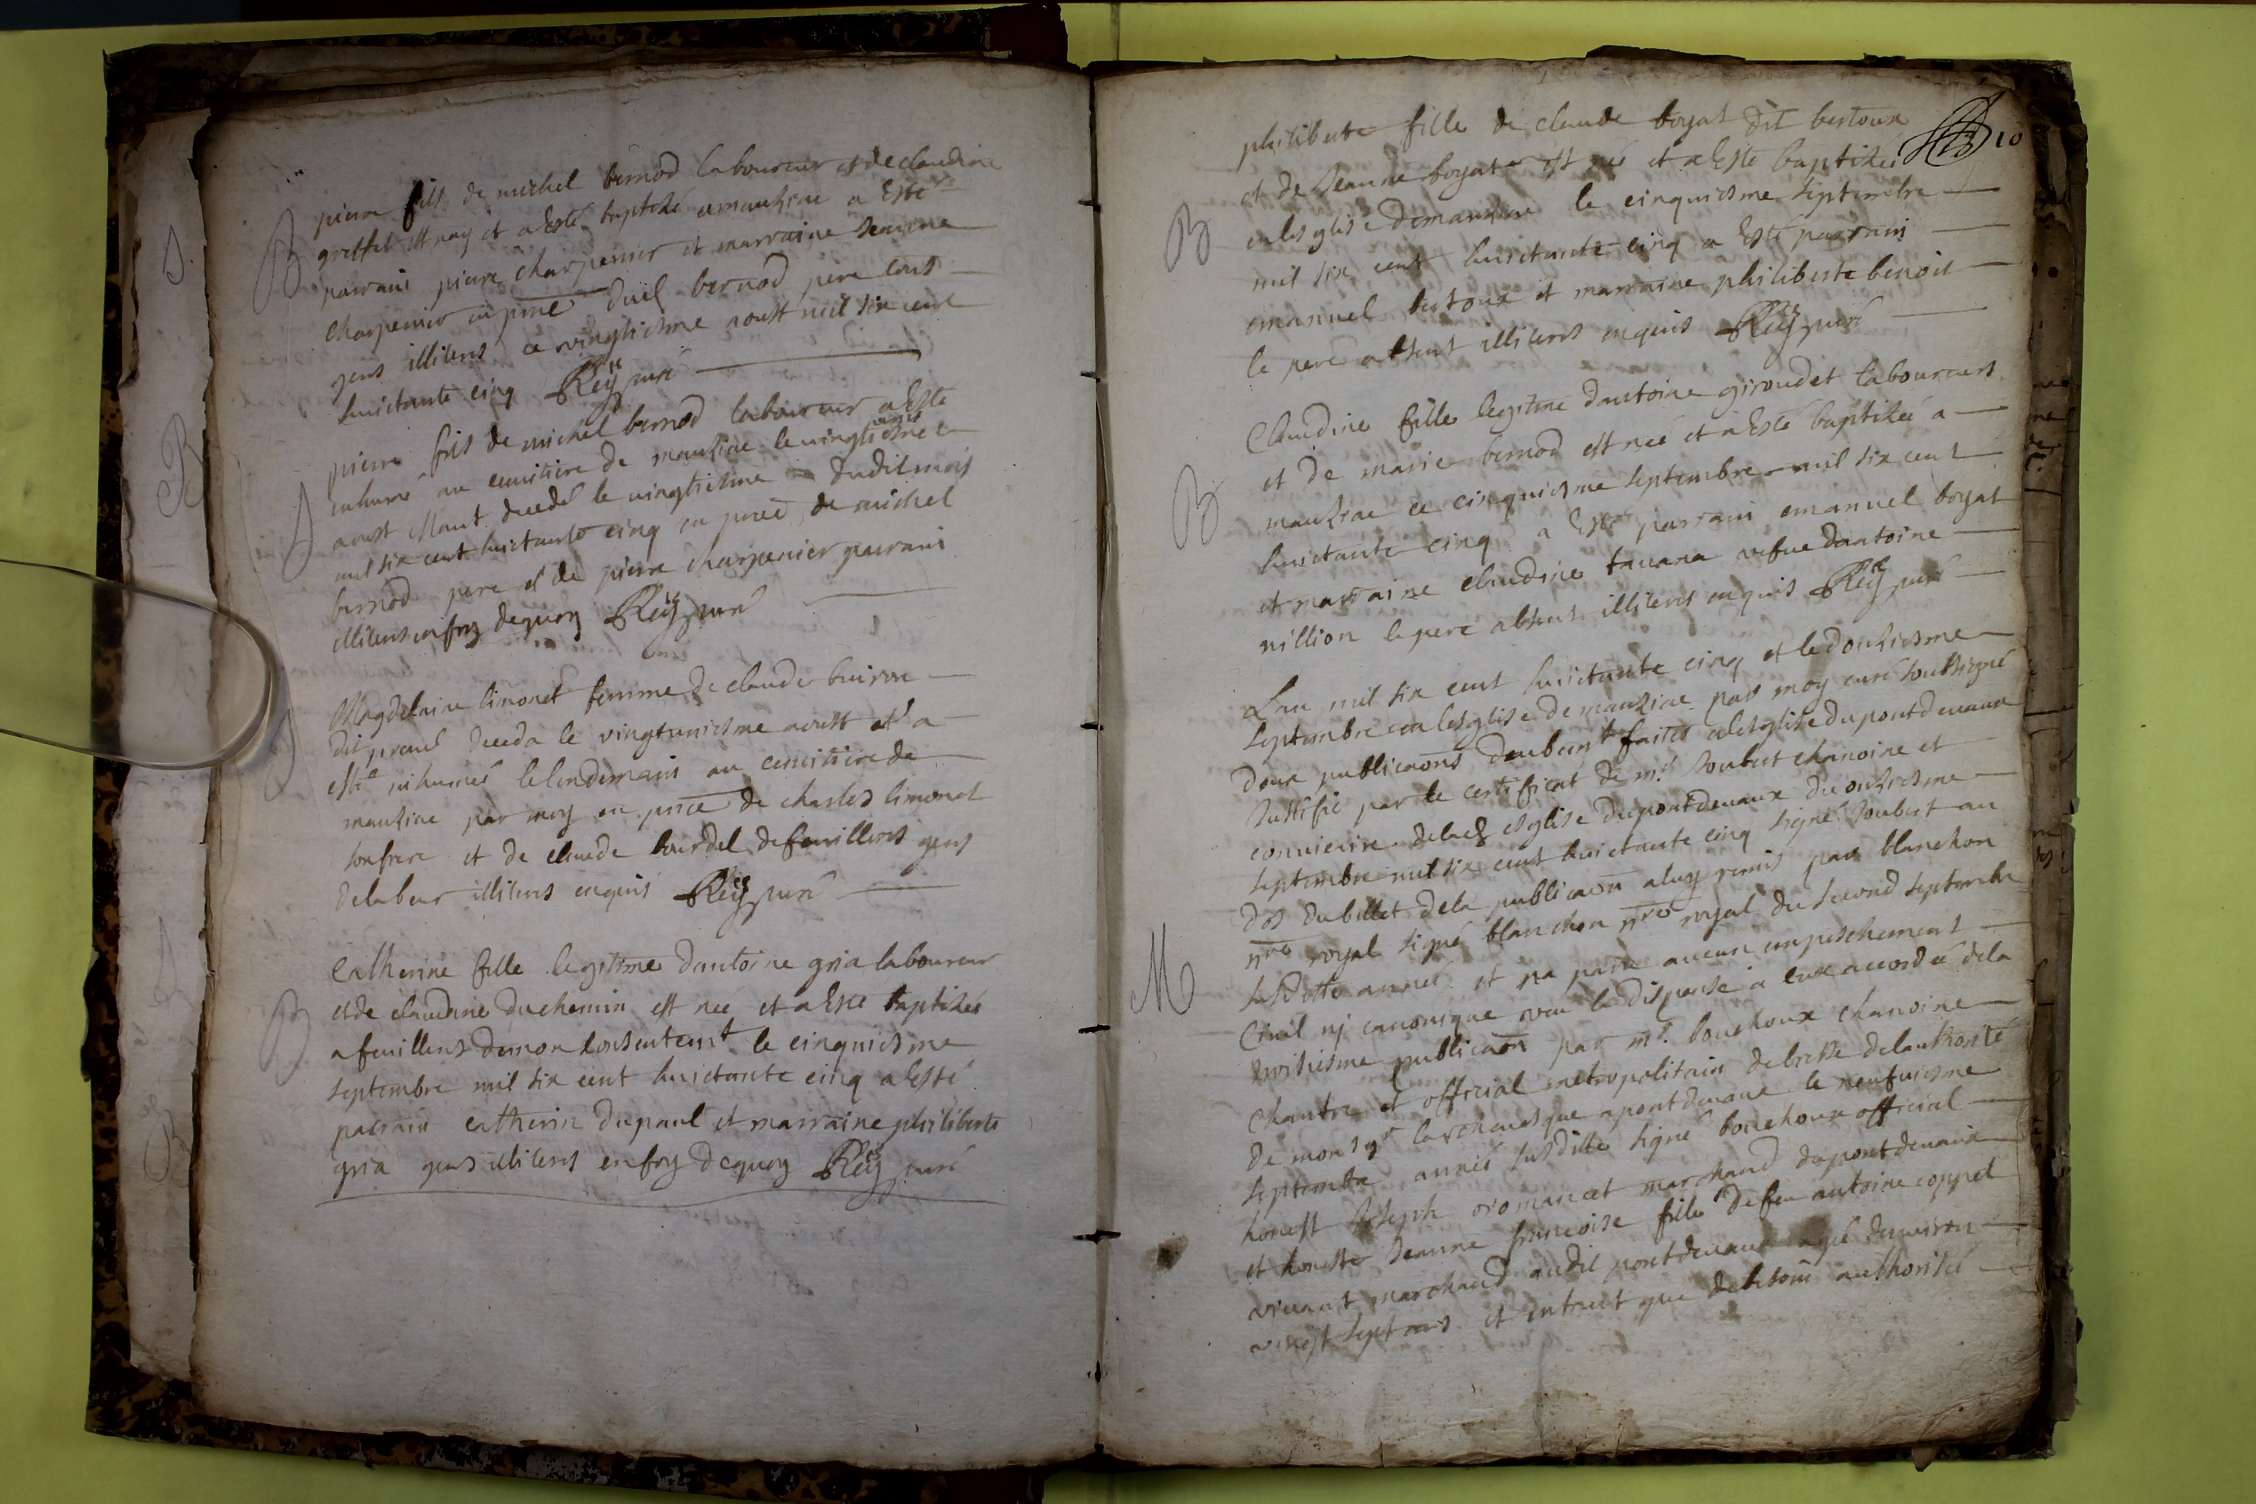 B
pierre fils de michel bernod laboureur et de claudine
griffet est nay et a Esté baptisé a manziac a Esté
parrain pierre charpenier et marraine Jeanne
charpenier en pnce duil bernod pere tous
gens illiteres ce vingtiesme aoust mil six cent
huictante cinq Reÿ curé
pierre fils de michel bernod laboureur a Esté
inhumé au cemitiere de manziac le vingt uniesme
aoust Mout decedé le vingtiesme dudit mois
mil six cent huictante cinq en pnce de michel
bernod pere et de pierre charpenier parrain
illiteres en foy dequoy Reÿ curé
Magdelaine limonet femme de claude buiron
dit preual deceda le vingtuniesme aoust et a
esté inhumée le lendemain au cemitiere de
manziac par moy en pnce de charles limonet
son frere et de claude bourdel de feuillens gens
de labeur illiteres enquis Reÿ curé
B
Catherine fille legitime dantoine gria laboureur
et de claudine duchemin est nee et a Esté baptisée
a feuillens de mon consentemt le cinquiesme
septembre mil six cent huictante cinq a Esté
parrain catherin depaul et marraine philiberte
gria gens illiteres en foy dequoy Reÿ curé
10
philiberte fille de claude boyat dit bertoux
et de Jeanne boyat est née et a Esté baptisée
B
en lesglise de manziac le cinquiesme septembre
mil six cent huictante cinq a Esté parrain
emanuel bertoux et marraine philiberte benoit
le pere absent illiteres enquis Reÿ curé
Claudine fille legitime dantoine giroudet laboureurs
et de marie bernod est née et a Esté baptisée a
B
manziac ce cinquiesme septembre mil six cent
huictante cinq a Esté parrain emanuel boyat
et marraine claudine tauana vefue dantoine
nillion le pere absent illiteres enquis Reÿ curé
Lan mil six cent huictante cinq et le douziesme
septembre en lesglise de manziac par moy curé soubsigné
deux publicaons deubemt faites a lesglise du pontdevaux
Justifié par le certificat de mr Joubert chanoine et
convicaire de lad esglise du pontdevaux du onziesme
septembre mil six cent huictante cinq signé Joubert au
dos du billet de la publicaon a luy remis par blanchon
nre royal signé blanchon nre royal du second septembre
M
susditte année et na parru aucun empeschement
Ciuil nj canonique veu la dispense a eux accordée de la
troisiesme publicaon par mr. bouchoux chanoine
Chantre et official metropolitain de bresse de lauthorité
de monsgr larcheuesque a pontdevaux le neufuiesme
septembre année susditte signé bouchoux official
honest Joseph romancet marchand du pontdevaux
et honeste Jeanne francoise fille de feu antoine coppel
viuant marchand audit pontdevaux agé denuiron
vingt sept ans et en tant que de besoin authorisée